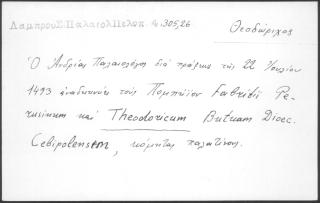 Λάμπρου Σ. Παλαιολ. Πελοπ. 4. 305,26
Θεοδώριχος
Ὁ Ἀνδρέας Παλαιολόγος διὰ πράξεως τῆς 22 Ἰουλίου
1493 ἀναδεικνύει τοὺς Πομπήϊον Fabritii Pe-
rusinum καὶ Theodoricum Butuam Dioec.
Cebipolensem, κόμητας παλατίνους.